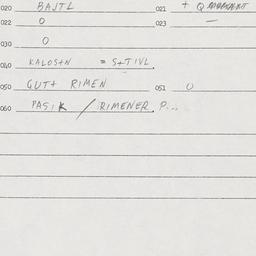 020 BAJTL 021 + Q
022 0 023 —
030 0
040 KALOS+N = S+TIVL.
050 GUT+ RIMEN 051 0
060 PASIK / RIMENER P...